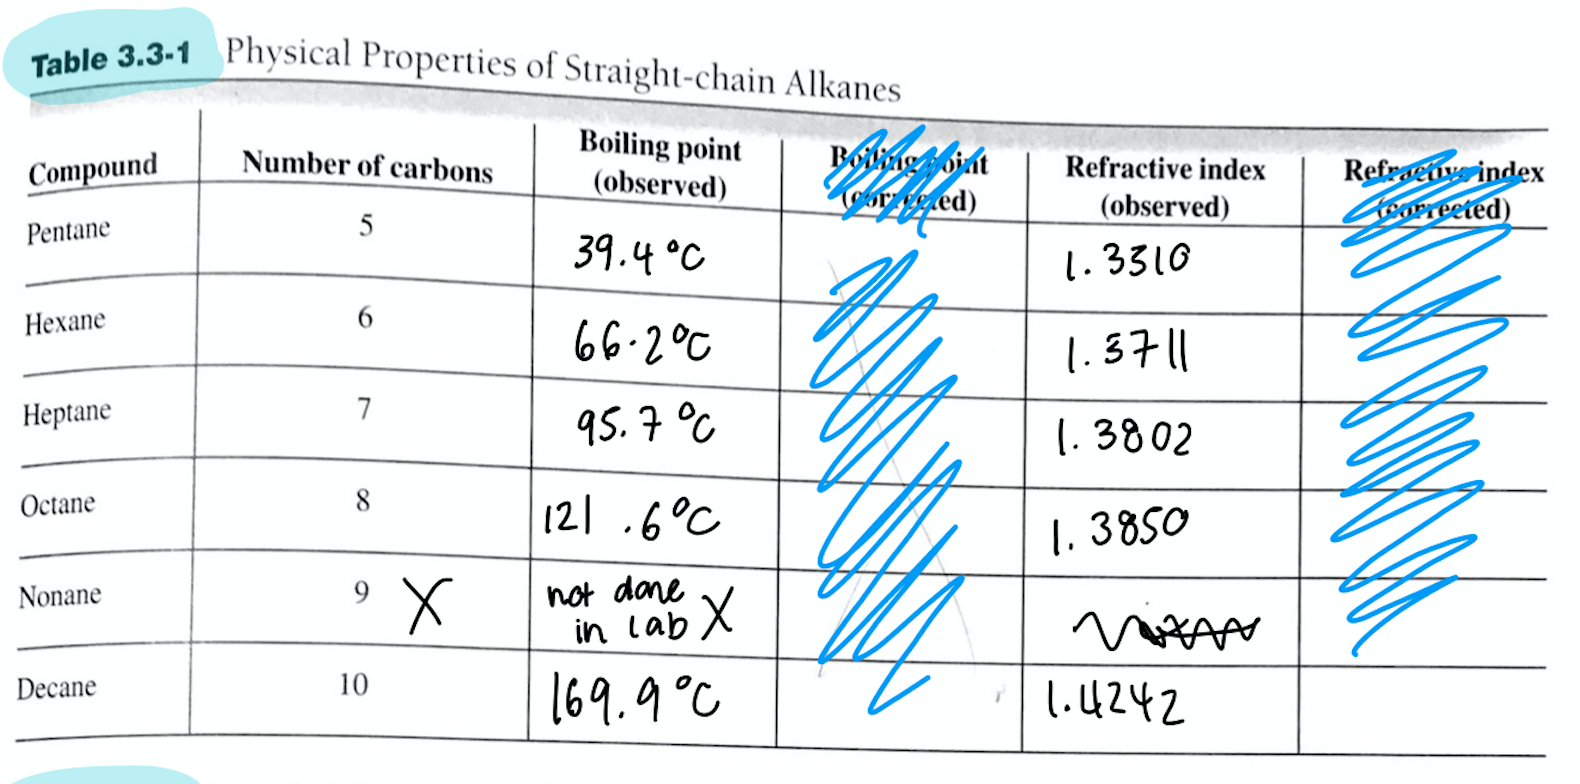 Table 3.3-1 Physical Properties of Straight-chain Alkanes
Compound Number of carbons Boiling point (observed) Boiling point (corrected) Refractive index (observed) Refractive index (corrected)
Pentane 5 39.4°C 1.3310
Hexane 6 66.2°C 1.3711
Heptane 7 95.7°C 1.3802
Octane 8 121.6°C 1.3850
Nonane 9 X not done in lab X
Decane 10 169.9°C 1.4242